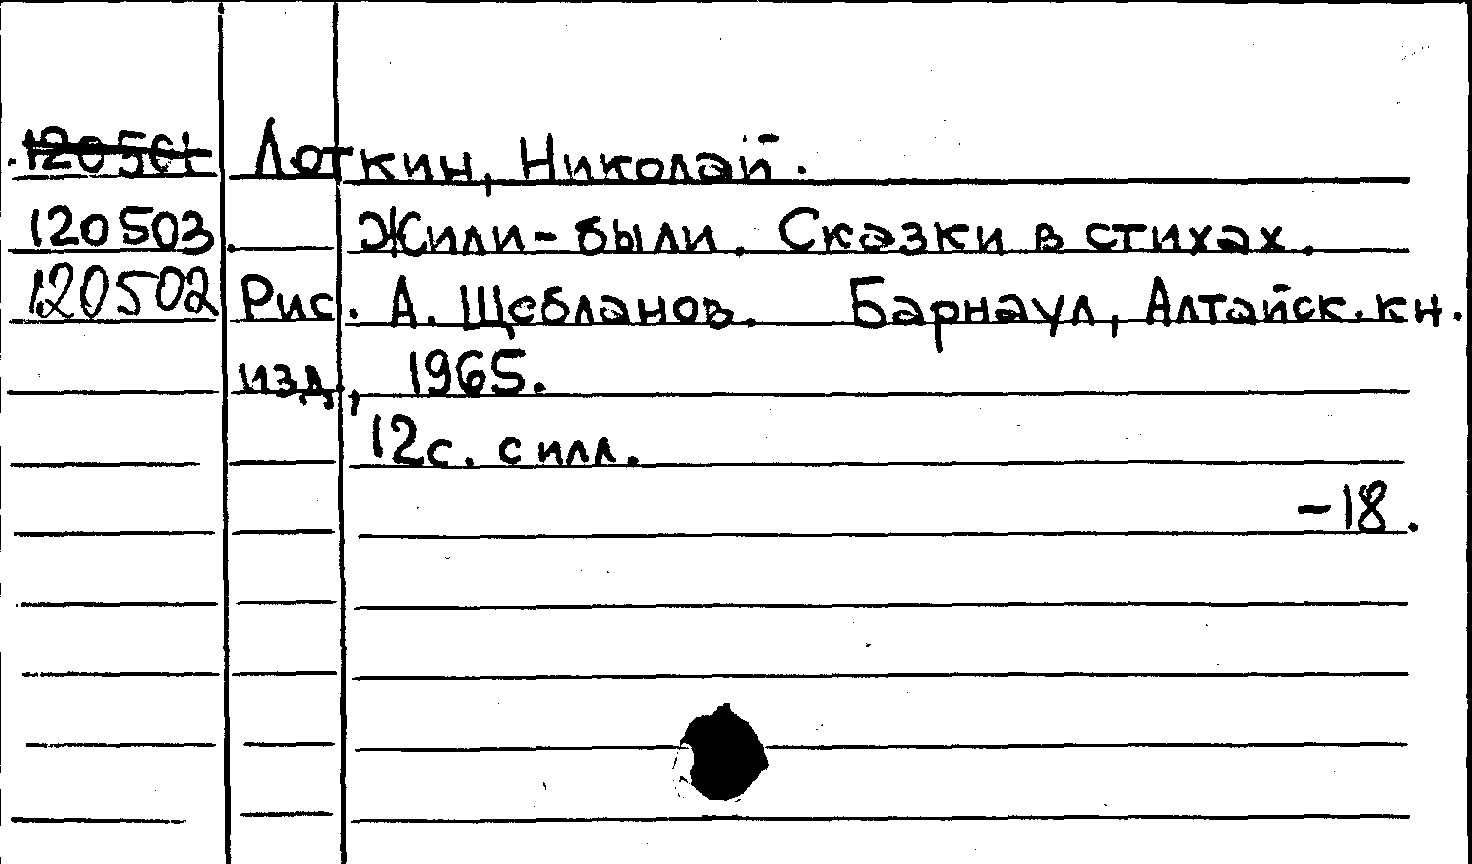 120501 Лоткин, Николай.
120503. Жили-были. Сказки в стихах.
120502 Рис. А. Щебланов. Барнаул, Алтайск. кн.
изд., 1965.
12с. с илл.
-18.